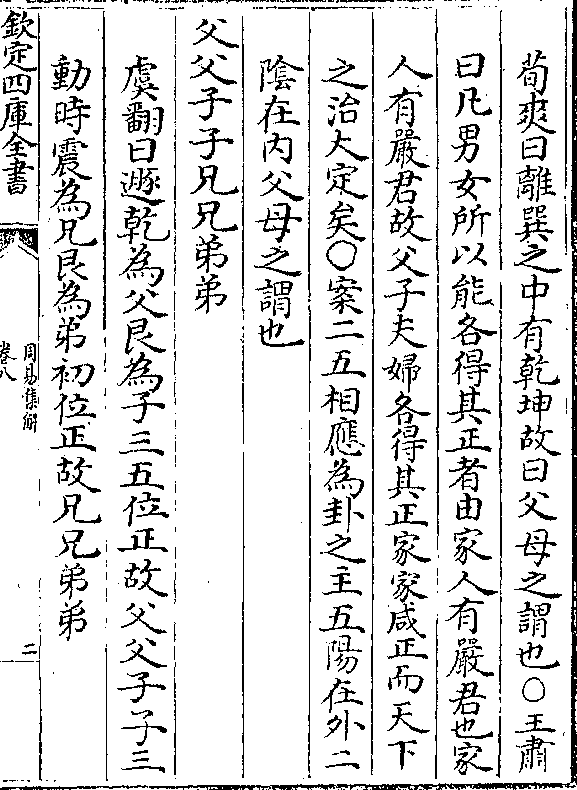 荀爽曰離巽之中有乾坤故曰父母之謂也○王肅
曰凡男女所以能各得其正者由家人有嚴君也家
人有嚴君故父子夫婦各得其正家家咸正而天下
之治大定矣○案二五相應為卦之主五陽在外二
陰在內父母之謂也
父父子子兄兄弟弟
虞翻曰遯乾為父艮為子三五位正故父父子子三
動時震為兄艮為弟初位正故兄兄弟弟
欽定四庫全書
周易集解
卷八
二